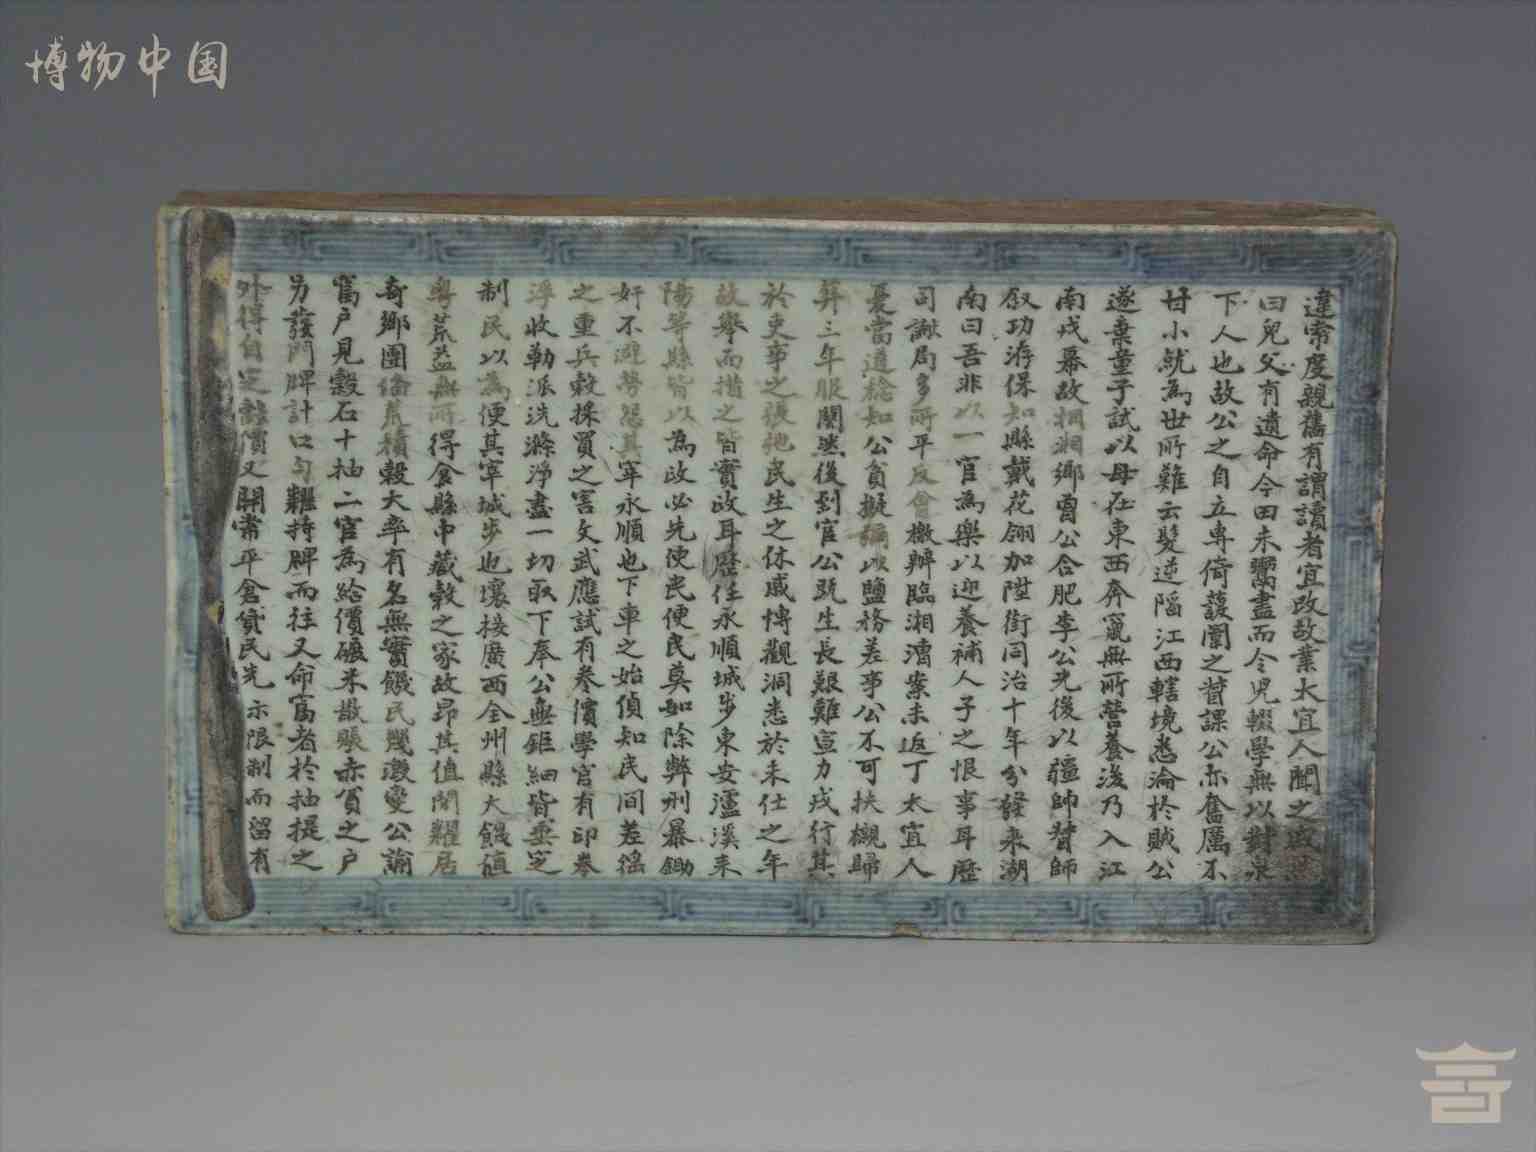 博物中国
違常度親舊有謂讀者宜改故業太宜人聞之
曰兒父有遺命今田未鬻盡而令兒輟學無以對泉
下人也故公之自立專倚護闈之督課公亦奮厲不
甘小就為世所難云髮逆陷江西轄境悉淪於賊公
遂棄童子試以母在東西奔竄無所營養後乃入江
南戎幕故桐湘鄉曾公合肥李公先後以疆師督師
叙功洊保知縣戴花翎加陞銜同治十年分發來湖
南曰吾非以一官為樂以迎養補人子之恨事耳歷
司讞局多所平反會檄辦臨湘漕案未返丁太宜人
憂當道稔知公貧擬彌以鹽務差事公不可扶櫬歸
葬三年服闋然後到官公既生長艱難宣力戎行其
於吏事之張弛民生之休戚博觀洞悉於未仕之年
故舉而措之皆實政耳歷任永順城步東安瀘溪耒
陽等縣皆以為政必先使民便民莫如除弊刑暴鋤
奸不避勞怨其宰永順也下車之始偵知民间差徭
之重兵穀採買之害文武應試有卷價學官有印卷
浮收勒派洗滌淨盡一切取下奉公無鉅細皆垂定
制民以為便其宰城步也壤接廣西全州縣大饑值
粵荒益無所得倉縣中藏穀之家故昂其值閉糶居
奇鄉團備荒積穀大率有名無實饑民幾激變公諭
富户見穀石十抽二官為給價碾米散賬赤貧之户
另發門牌計口勻糶持牌而往又命富者於抽提之
外得自定糶價又開常平倉貸民先示限制而留有